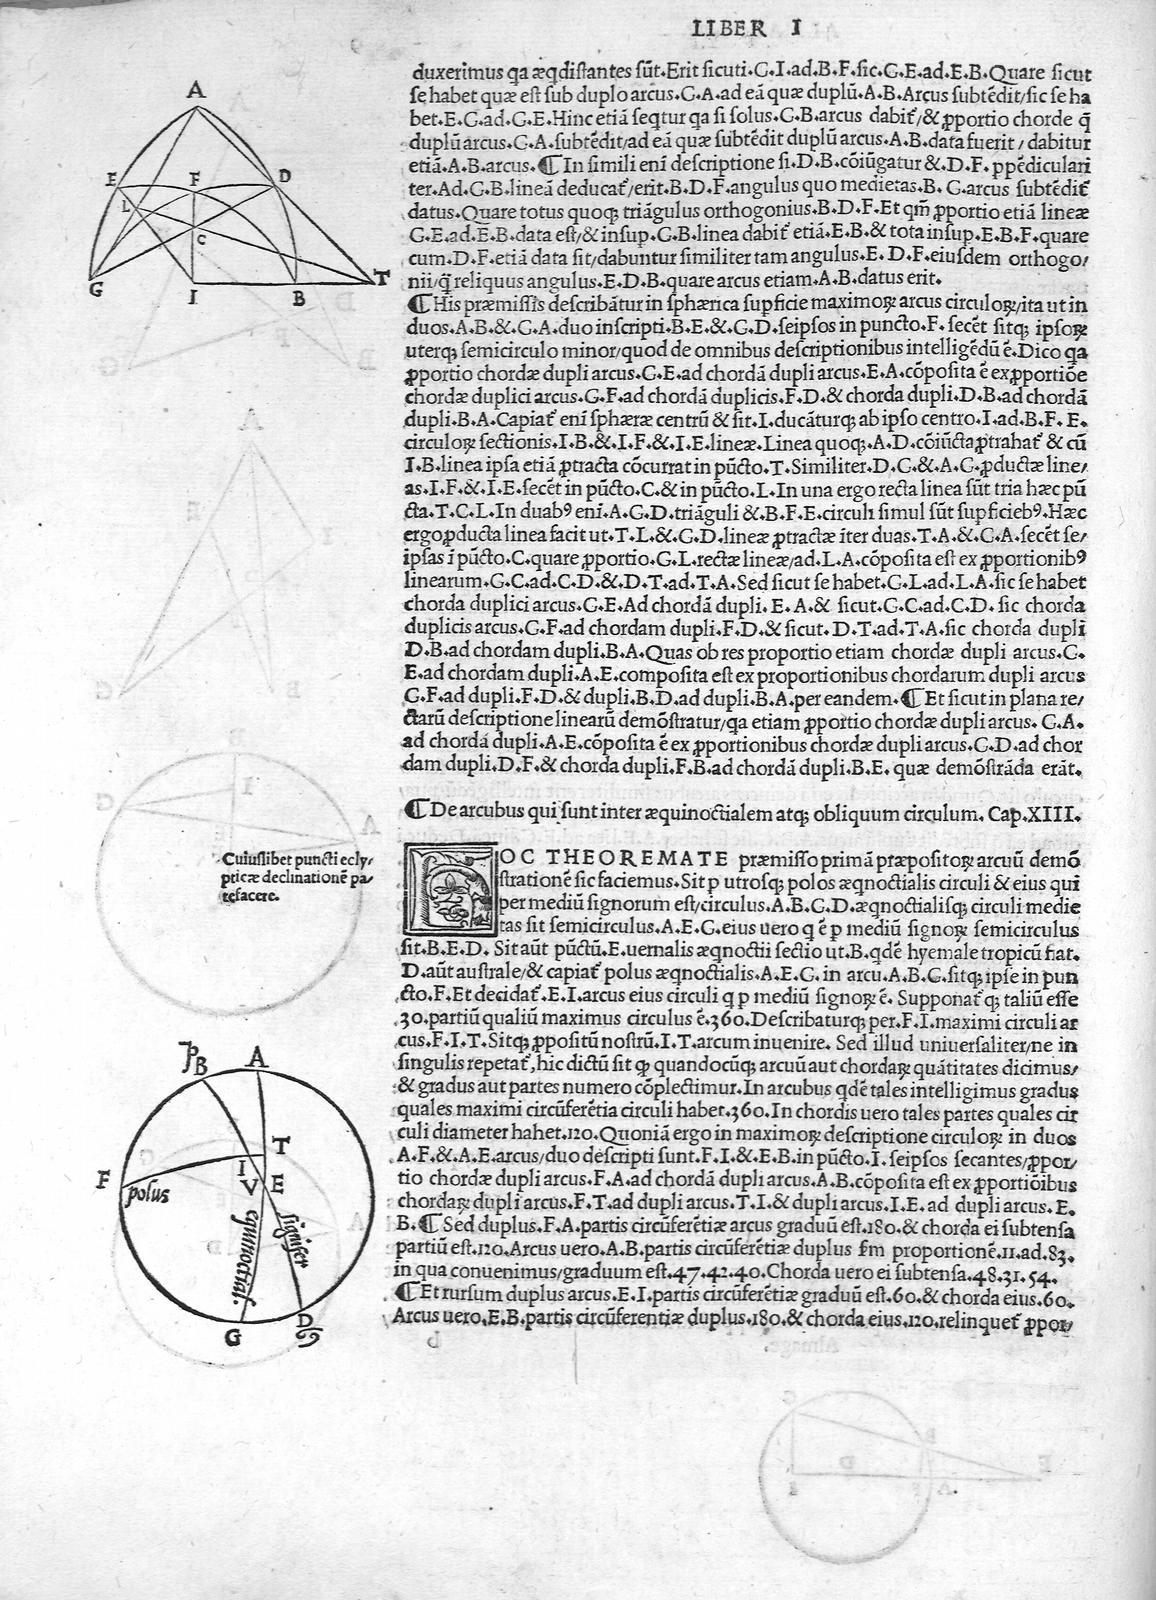 LIBER I
duxerimus qa æqdistantes sũt.Erit sicuti.G.I.ad.B.F.sic.G.E.ad.E.B.Quare sicut
se habet quæ est sub duplo arcus.G.A.ad eã quæ duplũ.A.B.Arcus subtẽdit/sic se ha
bet.E.G.ad.G.E.Hinc etiã seqtur qa si solus.G.B.arcus dabit᷑/& ꝓportio chorde q̃
duplũ arcus.G.A.subtẽdit/ad eã quæ subtẽdit duplũ arcus.A.B.data fuerit/dabitur
etiã.A.B.arcus.¶ In simili enĩ descriptione si.D.B.cõiũgatur &.D.F.ppẽdiculari
ter.Ad.G.B.lineã deducat᷑/erit.B.D.F.angulus quo medietas.B.G.arcus subtẽdit᷑
datus.Quare totus quoqꝫ triãgulus orthogonius.B.D.F.Et qm̃ ꝓportio etiã lineæ
G.E.ad.E.B.data est/& insup.G.B.linea dabit᷑ etiã.E.B.& tota insup.E.B.F.quare
cum.D.F.etiã data sit/dabuntur similiter tam angulus.E.D.F.eiusdem orthogo/
nii/q̃ reliquus angulus.E.D.B.quare arcus etiam.A.B.datus erit.
¶His præmissis describãtur in sphærica supficie maximoꝝ arcus circuloꝝ/ita ut in
duos.A.B.&.G.A.duo inscripti.B.E.&.G.D.seipsos in puncto.F.secẽt sitqꝫ ipsoꝝ
uterqꝫ semicirculo minor/quod de omnibus descriptionibus intelligẽdũ ẽ.Dico qa
ꝓportio chordæ dupli arcus.G.E.ad chordã dupli arcus.E.A.cõposita ẽ ex ꝓportiõe
chordæ duplici arcus.G.F.ad chordã duplicis.F.D.& chorda dupli.D.B.ad chordã
dupli.B.A.Capiat᷑ enĩ sphæræ centrũ & sit.I.ducãturqꝫ ab ipso centro.I.ad.B.F.E.
circuloꝝ sectionis.I.B.&.I.F.&.I.E.lineæ.Linea quoqꝫ.A.D.cõiũcta ꝓtrahat᷑ & cũ
I.B.linea ipsa etiã ꝓtracta cõcurrat in pũcto.T.Similiter.D.G.&.A.G.ꝓductæ line/
as.I.F.&.I.E.secẽt in pũcto.C.& in pũcto.L.In una ergo recta linea sũt tria hæc pũ
cta.T.C.L.In duabꝰ enĩ.A.G.D.triãguli &.B.F.E.circuli simul sũt supficiebꝰ.Hæc
ergo ꝓducta linea facit ut.T.L.&.G.D.lineæ ꝓtractæ ĩter duas.T.A.&.G.A.secẽt se/
ipsas ĩ pũcto.C.quare ꝓportio.G.L.rectæ lineæ/ad.L.A.cõposita est ex ꝓportionibꝰ
linearum.G.C.ad.C.D.&.D.T.ad.T.A.Sed sicut se habet.G.L.ad.L.A.sic se habet
chorda duplici arcus.G.E.Ad chordã dupli.E.A.& sicut.G.C.ad.C.D.sic chorda
duplicis arcus.G.F.ad chordam dupli.F.D.& sicut.D.T.ad.T.A.sic chorda dupli
D.B.ad chordam dupli.B.A.Quas ob res proportio etiam chordæ dupli arcus.G.
E.ad chordam dupli.A.E.composita est ex proportionibus chordarum dupli arcus
G.F.ad dupli.F.D.& dupli.B.D.ad dupli.B.A.per eandem.¶ Et sicut in plana re/
ctarũ descriptione linearũ demõstratur/qa etiam ꝓportio chordæ dupli arcus.G.A.
ad chordã dupli.A.E.cõposita ẽ ex ꝓportionibus chordæ dupli arcus.G.D.ad chor
dam dupli.D.F.& chorda dupli.F.B.ad chordã dupli.B.E.quæ demõstrãda erãt.
¶ De arcubus qui sunt inter æquinoctialem atqꝫ obliquum circulum. Cap.XIII.
Cuiuslibet puncti ecly/
pticæ declinationẽ pa/
tefacere.
HOC THEOREMATE præmisso primã præpositoꝝ arcuũ demõ
strationẽ sic faciemus.Sit p utrosqꝫ polos æqnoctialis circuli & eius qui
per mediũ signorum est/circulus.A.B.G.D.æqnoctialisqꝫ circuli medie
tas sit semicirculus.A.E.G.eius uero q ẽ p mediũ signoꝝ semicirculus
sit.B.E.D. Sit aũt pũctũ.E.uernalis æqnoctii sectio ut.B.qdẽ hyemale tropicũ fiat.
D.aũt australe/& capiat᷑ polus æqnoctialis.A.E.G.in arcu.A.B.G.sitqꝫ ipse in pun
cto.F.Et decidat᷑.E.I.arcus eius circuli q p mediũ signoꝝ ẽ. Supponat᷑qꝫ taliũ esse
30.partiũ qualiũ maximus circulus ẽ.360.Describaturqꝫ per.F.I.maximi circuli ar
cus.F.I.T.Sitqꝫ ꝓpositũ nostrũ.I.T.arcum inuenire. Sed illud uniuersaliter/ne in
singulis repetat᷑,hic dictũ sit ꝙ quandocũqꝫ arcuũ aut chordaꝝ quãtitates dicimus/
& gradus aut partes numero cõplectimur.In arcubus qdẽ tales intelligimus gradus
quales maximi circũferẽtia circuli habet.360.In chordis uero tales partes quales cir
culi diameter hahet.120.Quoniã ergo in maximoꝝ descriptione circuloꝝ in duos
A.F.&.A.E.arcus/duo descripti sunt.F.I.&.E.B.in pũcto.I.seipsos secantes/ꝓpor/
tio chordæ dupli arcus.F.A.ad chordã dupli arcus.A.B.cõposita est ex ꝓportiõibus
chordaꝝ dupli arcus.F.T.ad dupli arcus.T.I.& dupli arcus.I.E.ad dupli arcus.E.
B.¶ Sed duplus.F.A.partis circũferẽtiæ arcus graduũ est.180.& chorda ei subtensa
partiũ est.120.Arcus uero.A.B.partis circũferẽtiæ duplus ẜm proportionẽ.11.ad.83.
in qua conuenimus/graduum est.47.42.40.Chorda uero ei subtensa.48.31.54.
¶ Et rursum duplus arcus.E.I.partis circũferẽtiæ graduũ est.60.& chorda eius.60.
Arcus uero.E.B.partis circũferentiæ duplus.180.& chorda eius.120.relinquet᷑ ꝓpor/
A
E F D
L
C
G I B T
B A
T
I
F polus V E
equinoctial.
signifer
G D